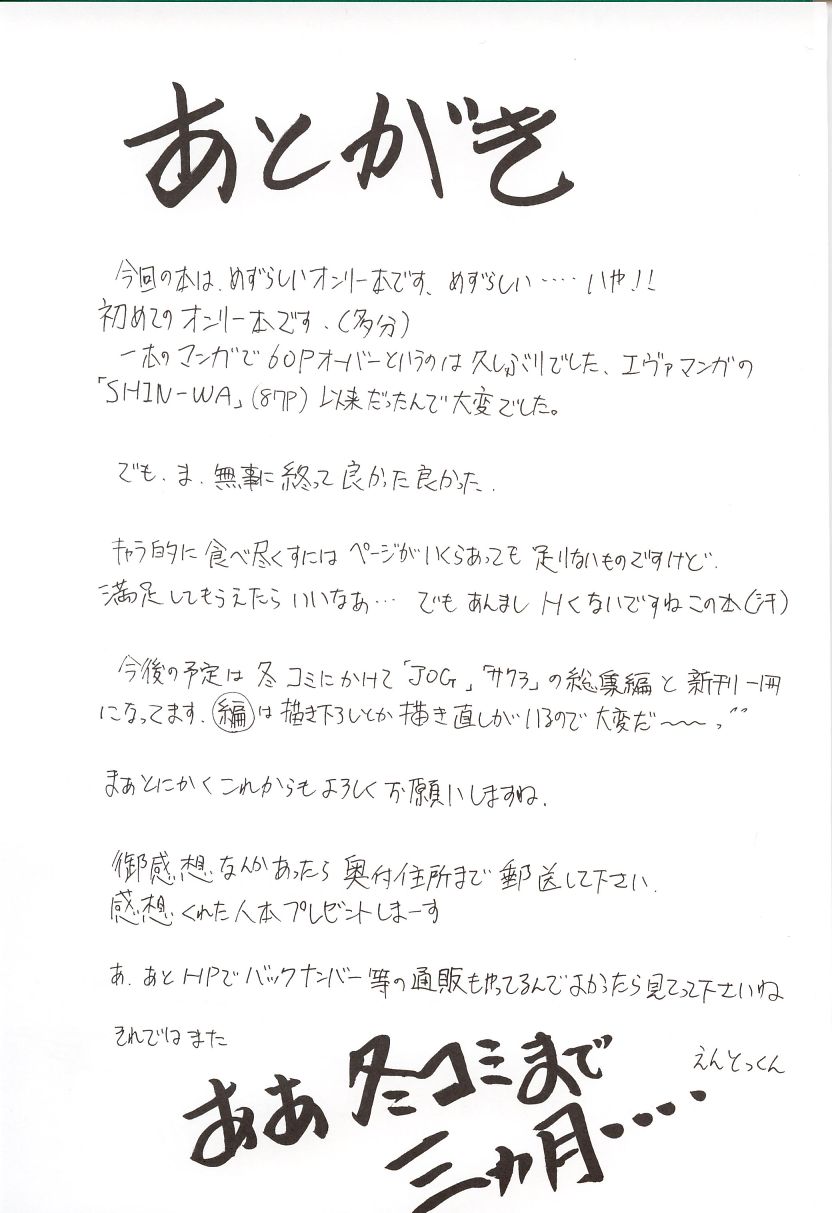 あとがき
今回の本は、めずらしいオンリー本です、めずらしい‥‥いや!!
初めてのオンリー本です、(多分)
一本のマンガで60Pオーバーというのは久しぶりでした、エヴァマンガの
「SHIN-WA」(87P)以来だったんで大変でした。
でも、ま、無事に終って良かった良かった、
キャラ的に食べ尽くすにはページがいくらあっても足りないものですけど、
満足してもらえたらいいなあ… でもあんましHくないですねこの本(汗)
今後の予定は冬コミにかけて「JOG」「サクラ」の総集編と新刊一冊
になってます、編は描き下ろしとか描き直しがいるので大変だ〜〜っ
まぁとにかくこれからもよろしくお願いしますね、
御感想なんかあったら奥付住所まで郵送して下さい、
感想くれた人本プレゼントしまーす
あ、あとHPでバックナンバー等の通販もやってるんでよかったら見てって下さいね
それではまた
えんとっくん
ああ冬コミまで
三ヵ月‥‥